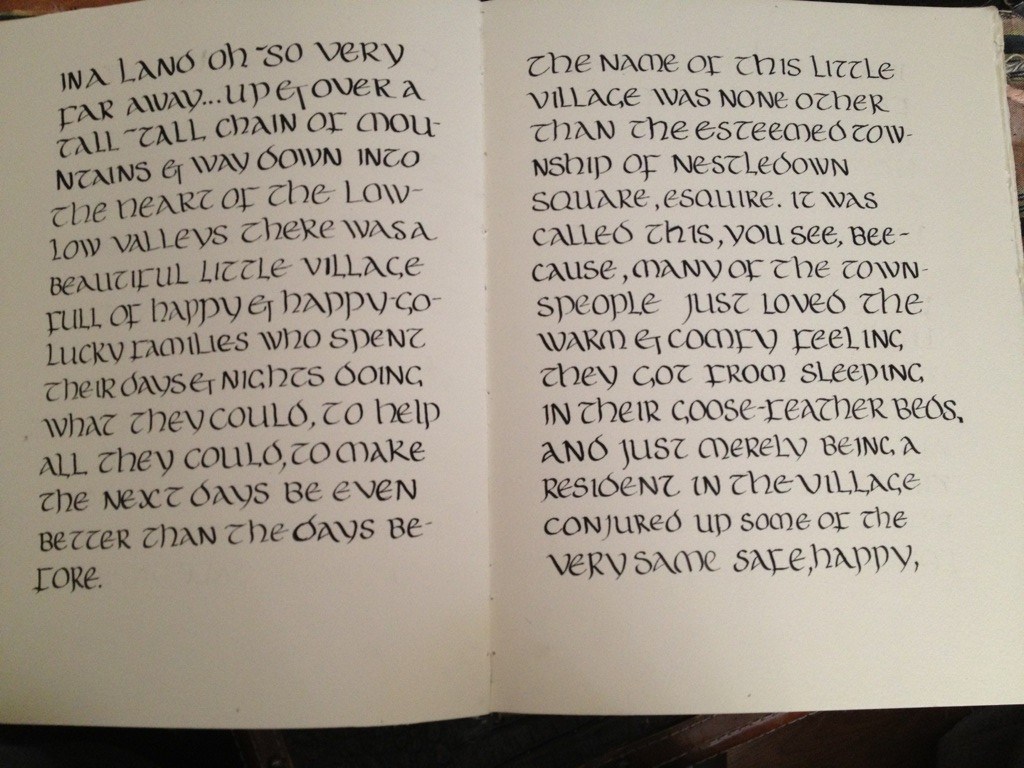 IN A LAND OH-SO VERY
FAR AWAY...UP & OVER A
TALL-TALL CHAIN OF MOU-
NTAINS & WAY DOWN INTO
THE HEART OF THE LOW-
LOW VALLEYS THERE WAS A
BEAUTIFUL LITTLE VILLAGE
FULL OF HAPPY & HAPPY-GO-
LUCKY FAMILIES WHO SPENT
THEIR DAYS & NIGHTS DOING
WHAT THEY COULD, TO HELP
ALL THEY COULD, TO MAKE
THE NEXT DAYS BE EVEN
BETTER THAN THE DAYS BE-
FORE.
THE NAME OF THIS LITTLE
VILLAGE WAS NONE OTHER
THAN THE ESTEEMED TOW-
NSHIP OF NESTLEDOWN
SQUARE, ESQUIRE. IT WAS
CALLED THIS, YOU SEE, BEE-
CAUSE, MANY OF THE TOWN-
SPEOPLE JUST LOVED THE
WARM & COMFY FEELING
THEY GOT FROM SLEEPING
IN THEIR GOOSE-FEATHER BEDS,
AND JUST MERELY BEING A
RESIDENT IN THE VILLAGE
CONJURED UP SOME OF THE
VERY SAME SAFE, HAPPY,